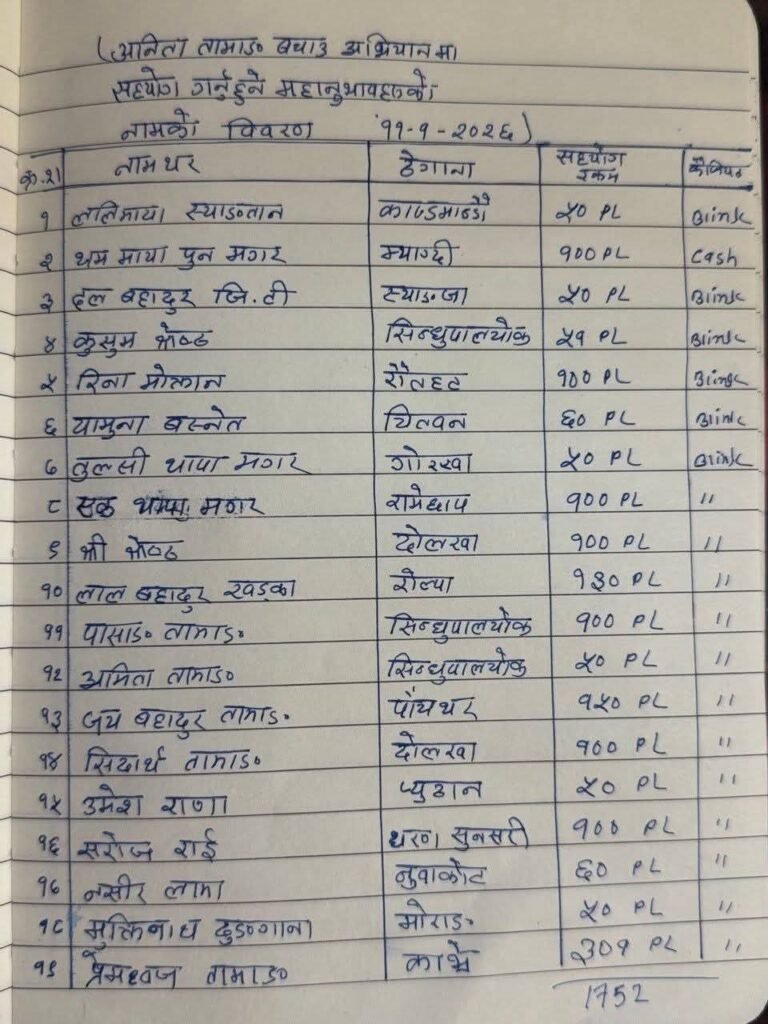 (अनिता तामाङ बचाउ अभियानमा
सहयोग गर्नुहुने महानुभावहरुको
नामको विवरण ११-१-२०२६)
क्र.श। नामथर ठेगाना सहयोग रकम कैफियत
१ ललिमाया स्याङतान काठमाण्डौ ५० PL Blink
२ थम माया पुन मगर म्याग्दी १०० PL Cash
३ दल बहादुर जि.टी स्याङजा ५० PL Blink
४ कुसुम श्रेष्ठ सिन्धुपालचोक ५१ PL Blink
५ रिना मोक्तान रौतहट १०० PL Blink
६ यामुना बस्नेत चितवन ६० PL Blink
७ तुलसी थापा मगर गोरखा ५० PL Blink
८ एक थापा मगर रामेछाप १०० PL "
९ श्री श्रेष्ठ दोलखा १०० PL "
१० लाल बहादुर खड्का रोल्पा १३० PL "
११ पासाङ तामाङ सिन्धुपालचोक १०० PL "
१२ अमिता तामाङ सिन्धुपालचोक ५० PL "
१३ जय बहादुर तामाङ पाँचथर १५० PL "
१४ सिदार्थ तामाङ दोलखा १०० PL "
१५ उमेश राणा प्युठान ५० PL "
१६ सरोज राई धरान सुनसरी १०० PL "
१७ नसीर लामा नुवाकोट ६० PL "
१८ मुक्तिनाथ दुङगाना मोराङ ५० PL "
१९ प्रेमध्वज तामाङ काभ्रे ३०१ PL "
1752